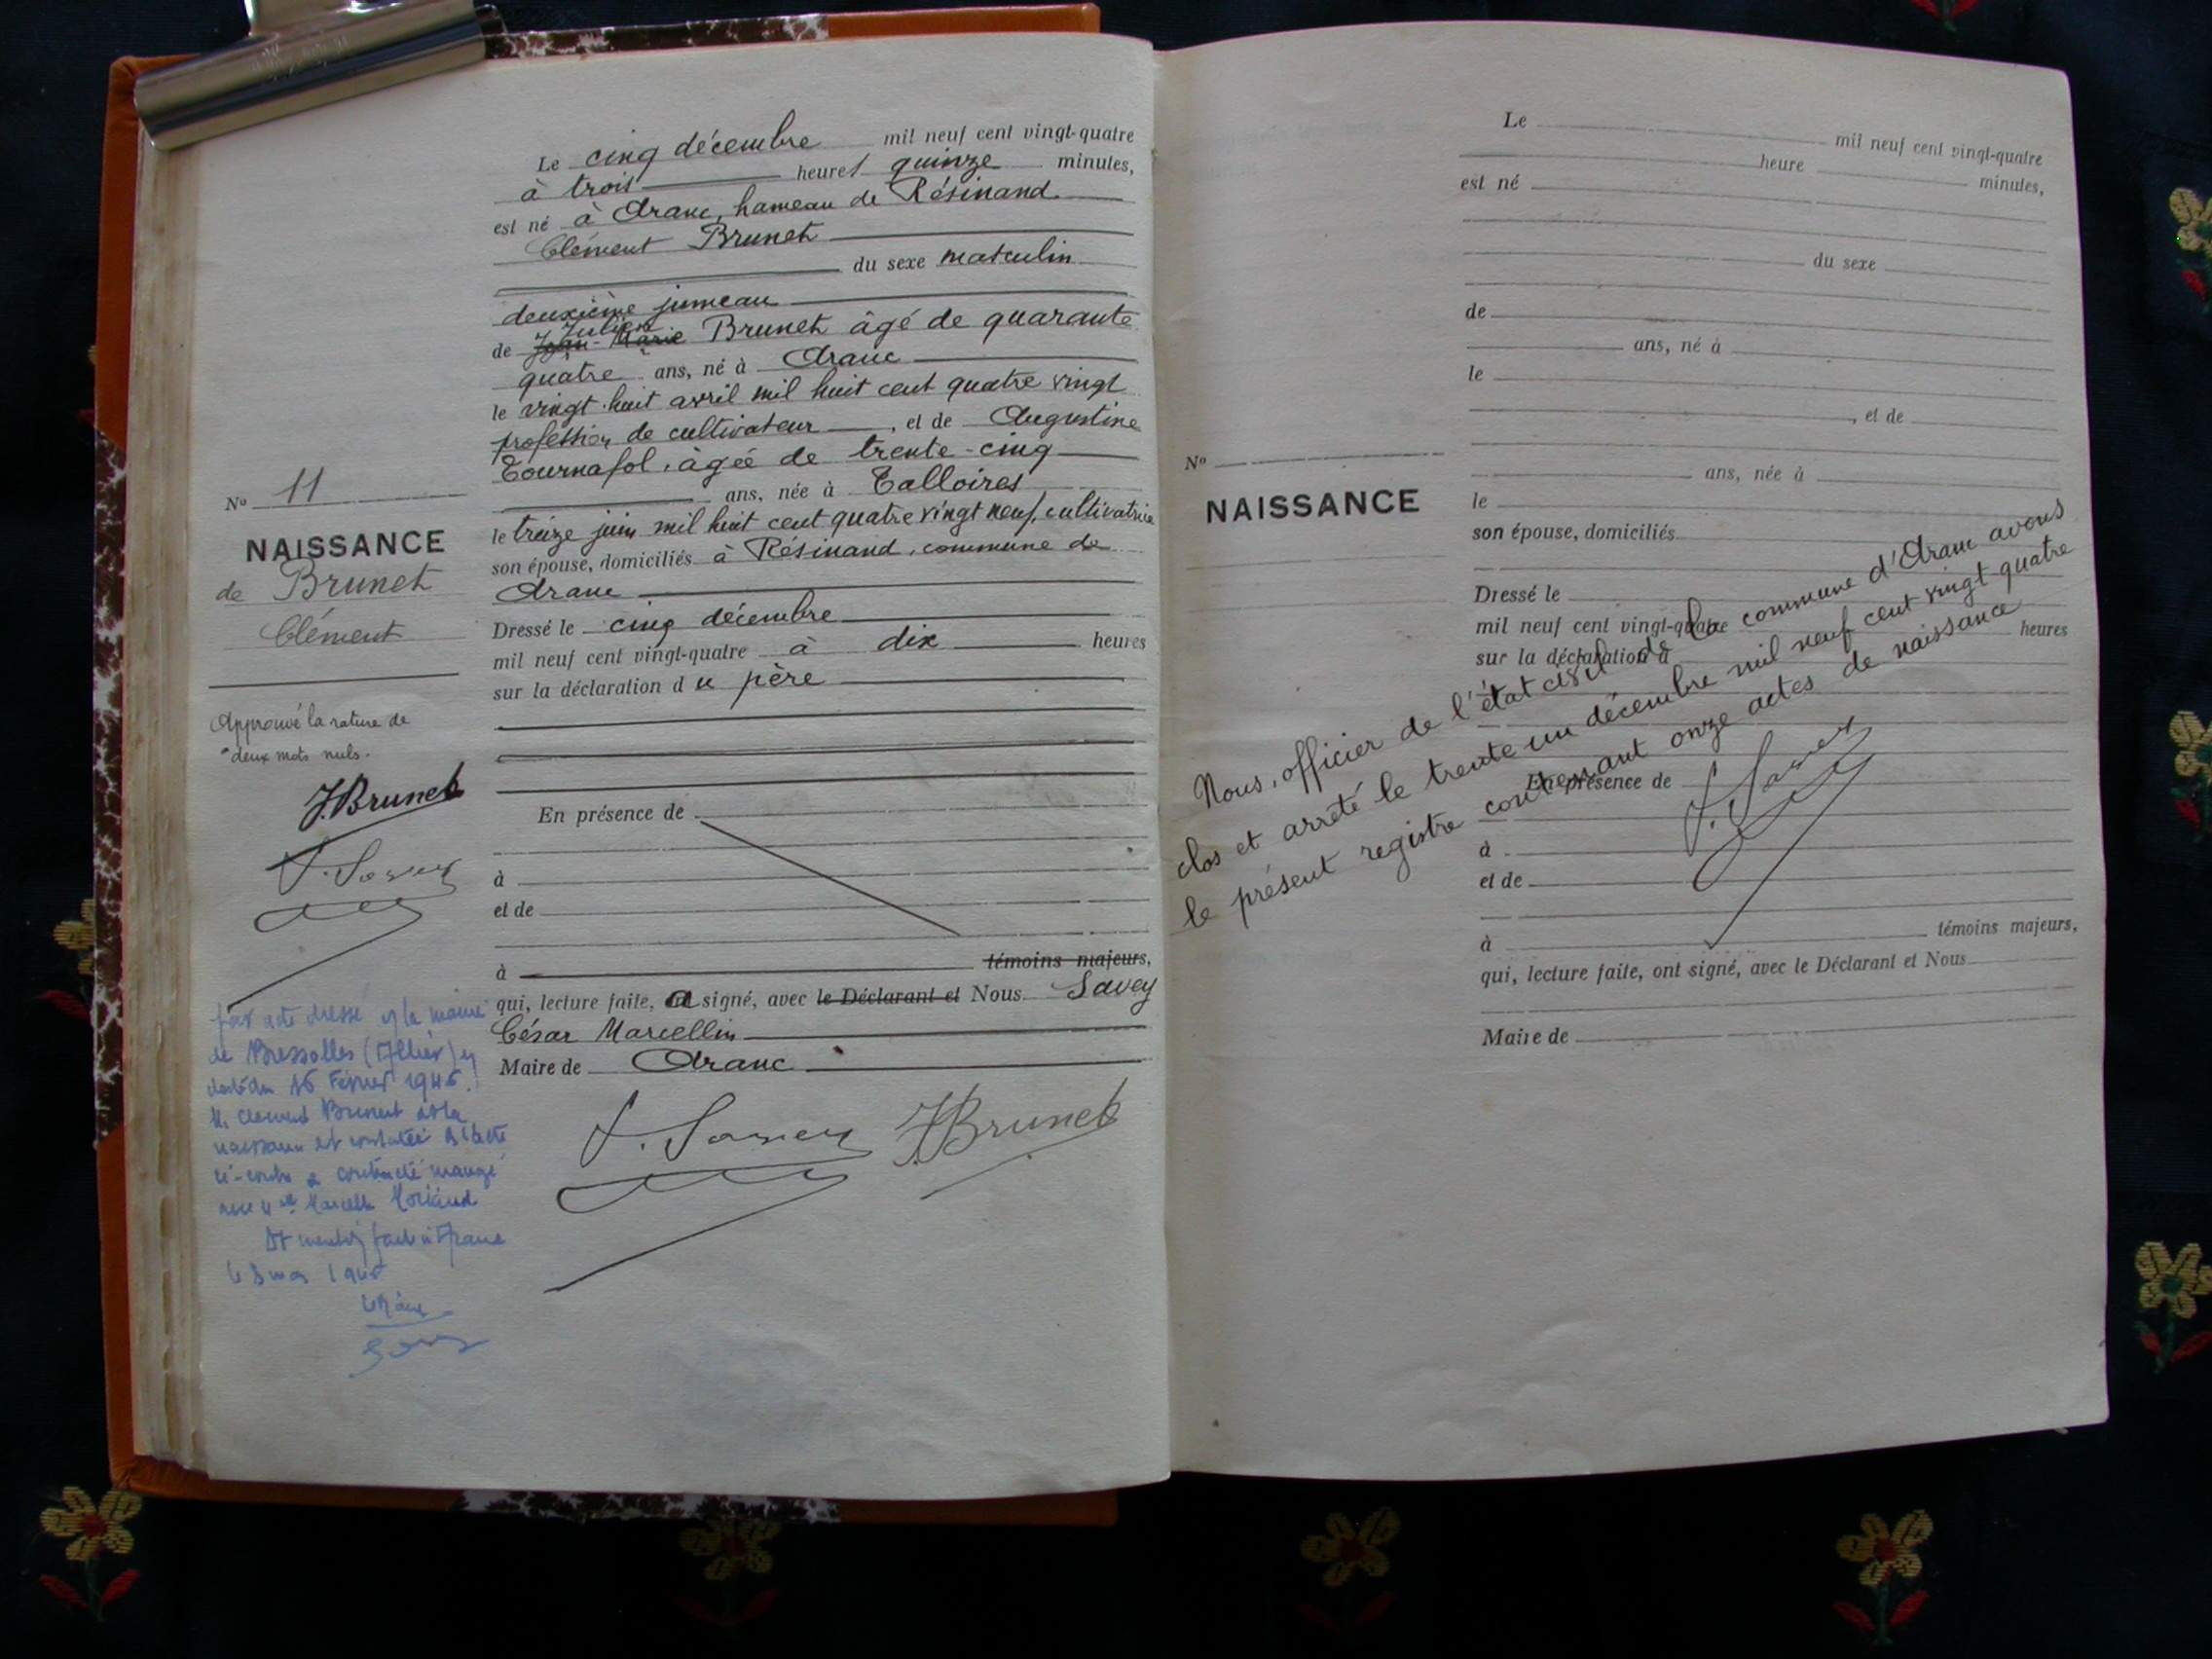 Le cinq décembre mil neuf cent vingt-quatre
à trois heures quinze minutes,
est né à Aranc, hameau de Résinand
Clément Brunet
du sexe masculin
deuxième jumeau
Julien
de Jean-Marie Brunet âgé de quarante
quatre ans, né à Aranc
le vingt-huit avril mil huit cent quatre vingt
profession de cultivateur, et de Augustine
Tournafol, âgée de trente-cinq
ans, née à Talloires
le treize juin mil huit cent quatre vingt neuf, cultivatrice
son épouse, domiciliés à Résinand, commune de
Aranc
Dressé le cinq décembre
mil neuf cent vingt-quatre à dix heures
sur la déclaration du père
En présence de
à
et de
à témoins majeurs,
qui, lecture faite, a signé, avec le Déclarant et Nous Savey
César Marcellin
Maire de Aranc
J. Brunet
No 11
NAISSANCE
de Brunet
Clément
Approuvé la rature de
deux mots nuls.
J. Brunet
par acte dressé à la mairie
de Bressolles (Allier) en
date du 16 Février 1946
M. Clément Brunet dont la
naissance est constatée à l'acte
ci-contre a contracté mariage
avec Mlle Marcelle
Dt mention faite à Aranc
le 8 mars
Le Maire
Le mil neuf cent vingt-quatre
heure minutes,
est né
du sexe
de
ans, né à
le
, et de
ans, née à
le
son épouse, domiciliés
Dressé le
mil neuf cent vingt-quatre
heures
sur la déclaration d
En présence de
à
et de
à témoins majeurs,
qui, lecture faite, ont signé, avec le Déclarant et Nous
Maire de
No
NAISSANCE
Nous, officier de l'état civil de la commune d'Aranc avons
clos et arrêté le trente un décembre mil neuf cent vingt quatre
le présent registre contenant onze actes de naissance